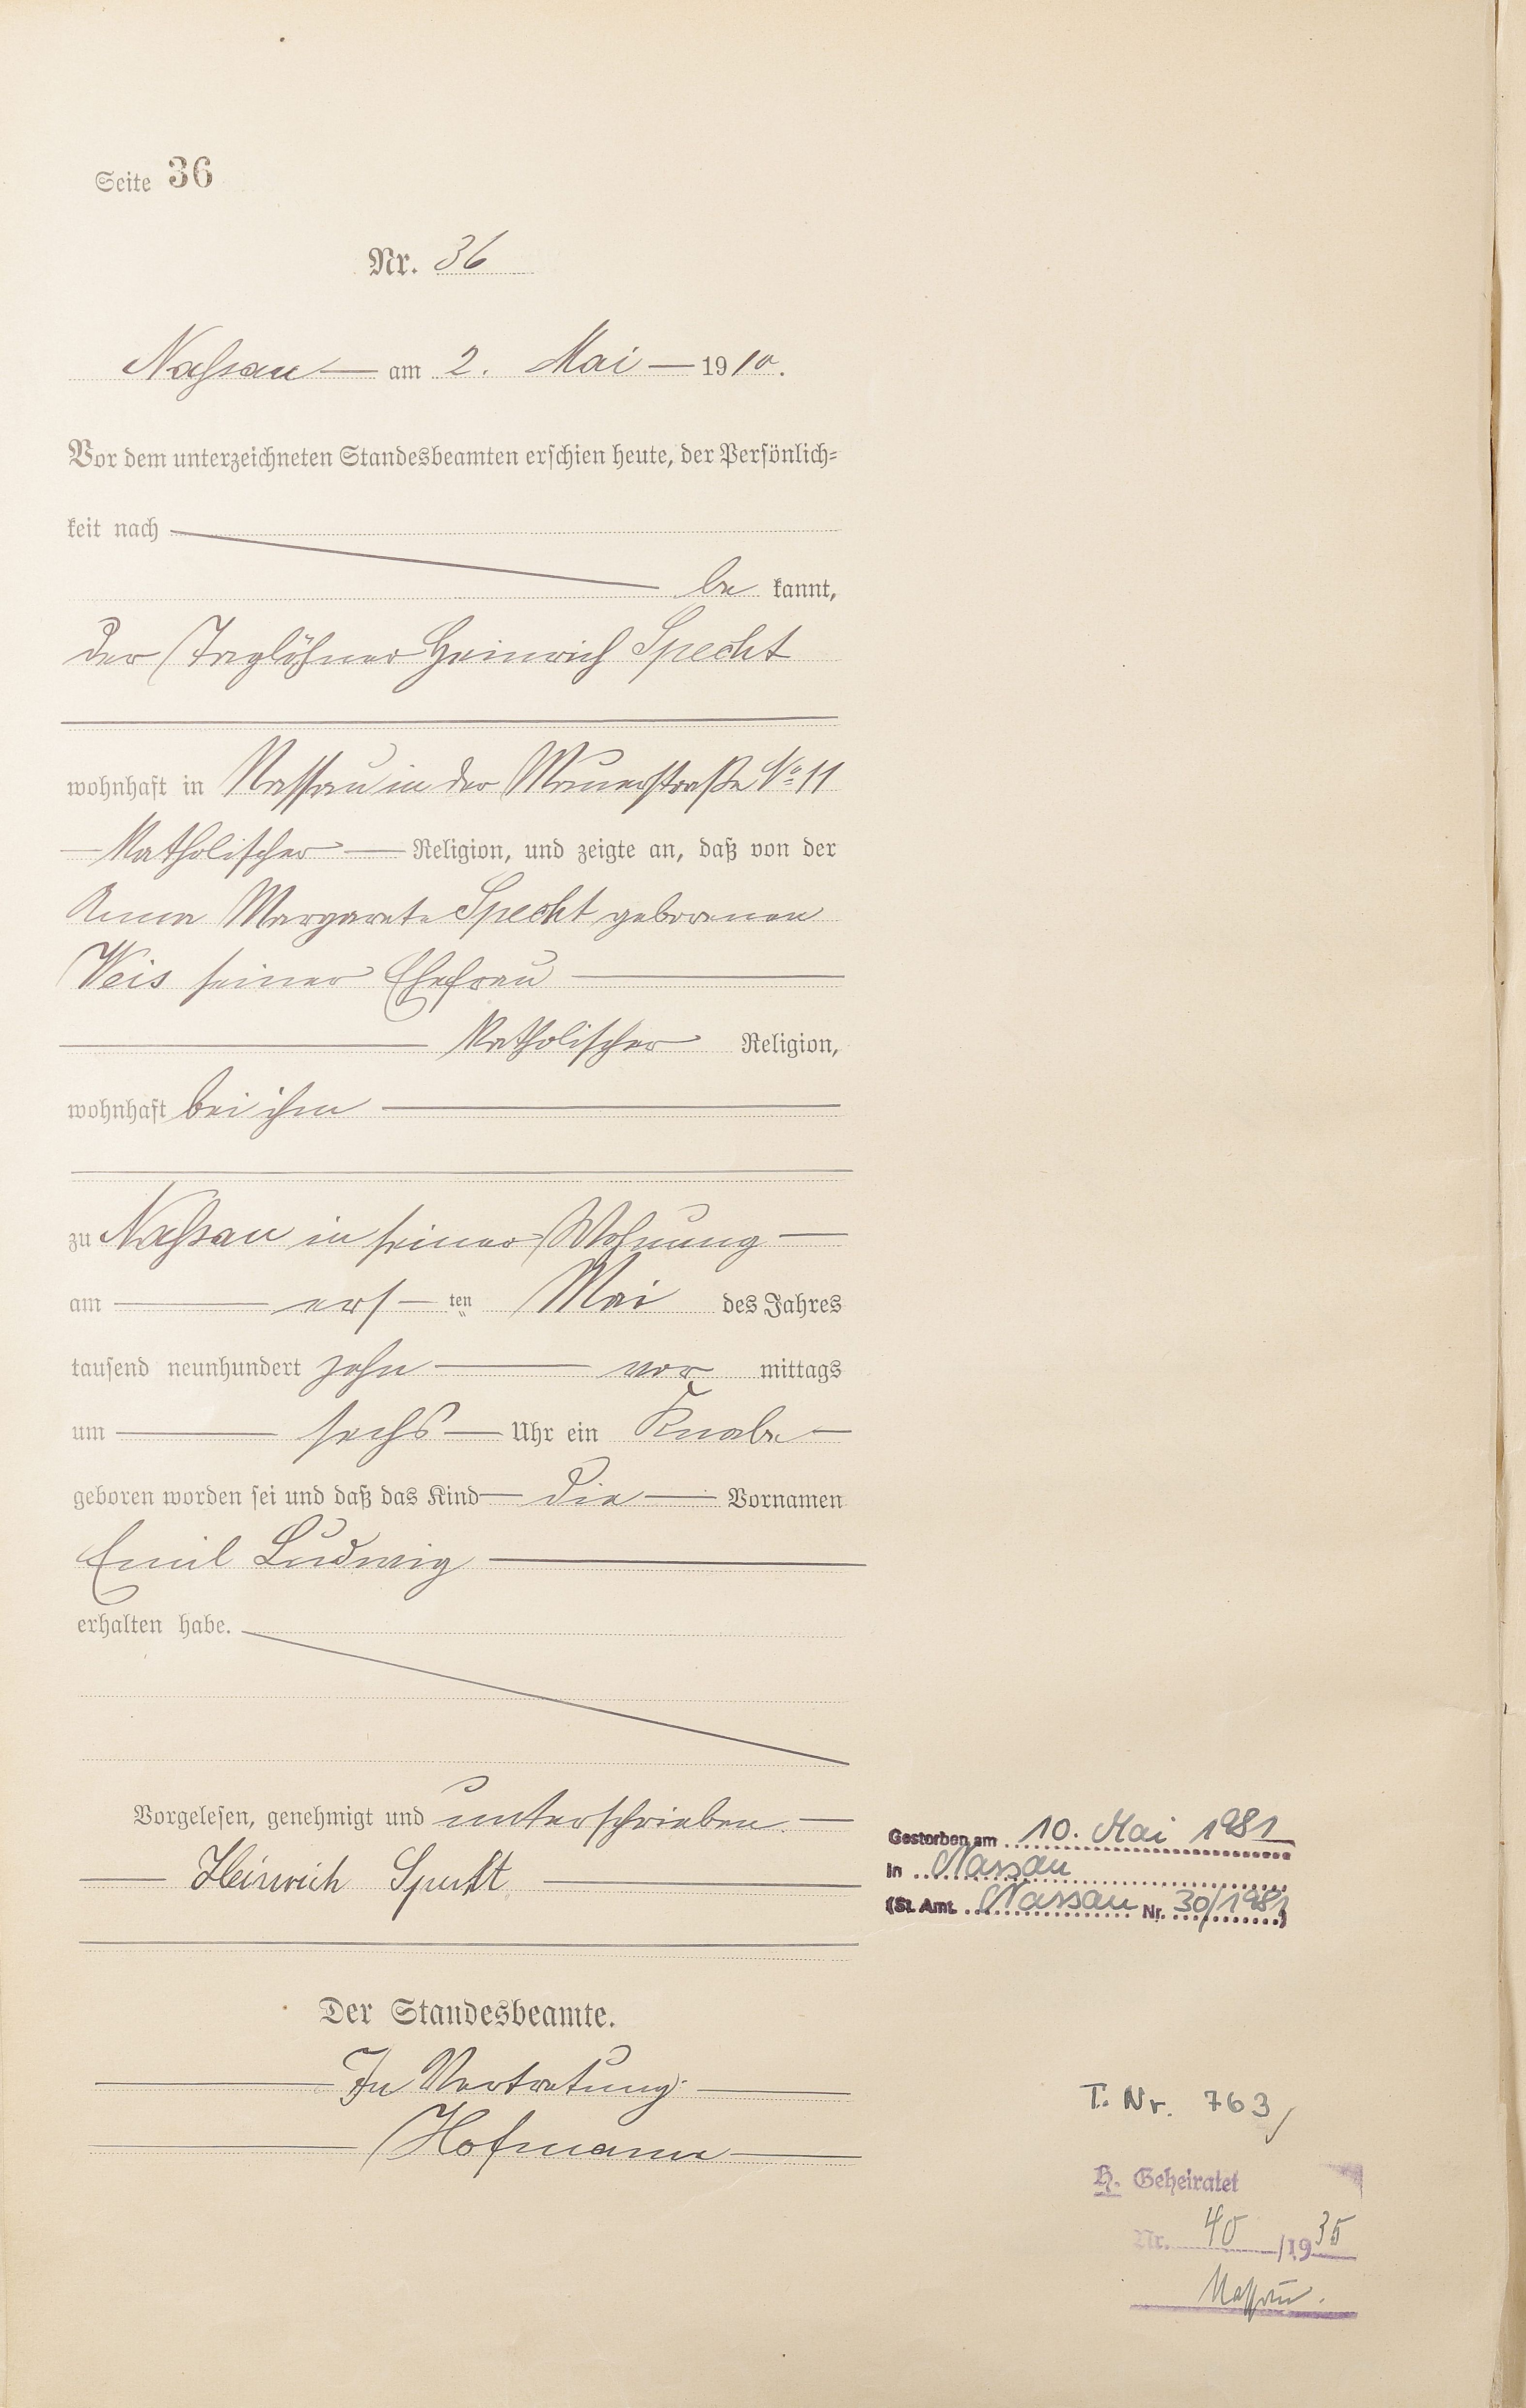 Seite 36
Nr. 36
Nassau am 2. Mai 1910.
Vor dem unterzeichneten Standesbeamten erschien heute, der Persönlich-
keit nach
be kannt,
der Taglöhner Heinrich Specht
wohnhaft in Nassau in der Mauerstraße No 11
Katholischer Religion, und zeigte an, daß von der
Anna Margarete Specht geborenen
Weis seiner Ehefrau
Katholischer Religion,
wohnhaft bei ihm
zu Nassau in seiner Wohnung
am ers ten Mai des Jahres
tausend neunhundert zehn vor mittags
um sechs Uhr ein Knabe
geboren worden sei und daß das Kind die Vornamen
Emil Ludwig
erhalten habe.
Vorgelesen, genehmigt und unterschrieben.
Heinrich Specht
Der Standesbeamte.
In Vertretung.
Hofmann
Gestorben am 10. Mai 1981
in Nassau
(St. Amt. Nassau Nr. 30/1981)
T. Nr. 763
H. Geheiratet
Nr. 40 /1935
Nassau.